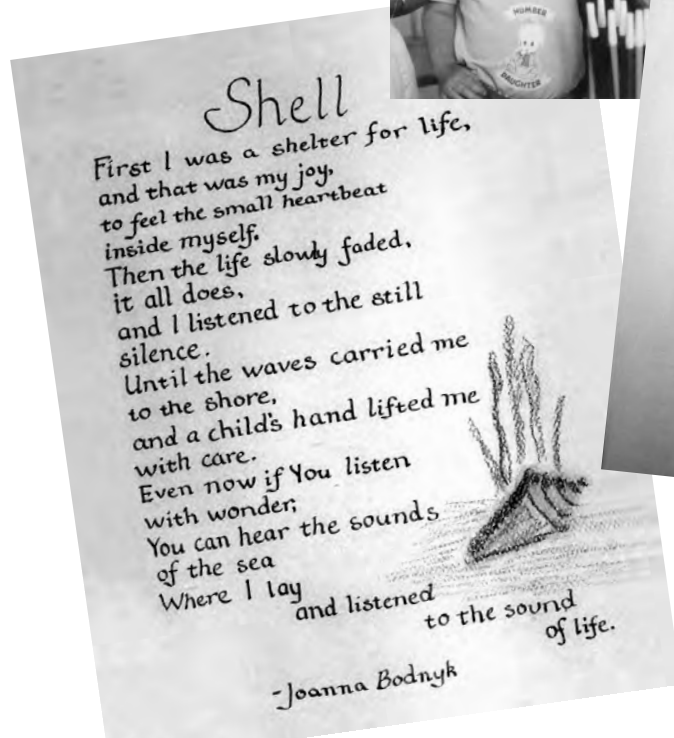 NUMBER
DAUGHTER
Shell
First I was a shelter for life,
and that was my joy,
to feel the small heartbeat
inside myself.
Then the life slowly faded,
it all does,
and I listened to the still
silence.
Until the waves carried me
to the shore,
and a child's hand lifted me
with care.
Even now if You listen
with wonder;
You can hear the sounds
of the sea
Where I lay
and listened
to the sound
of life.
-Joanna Bodnyk